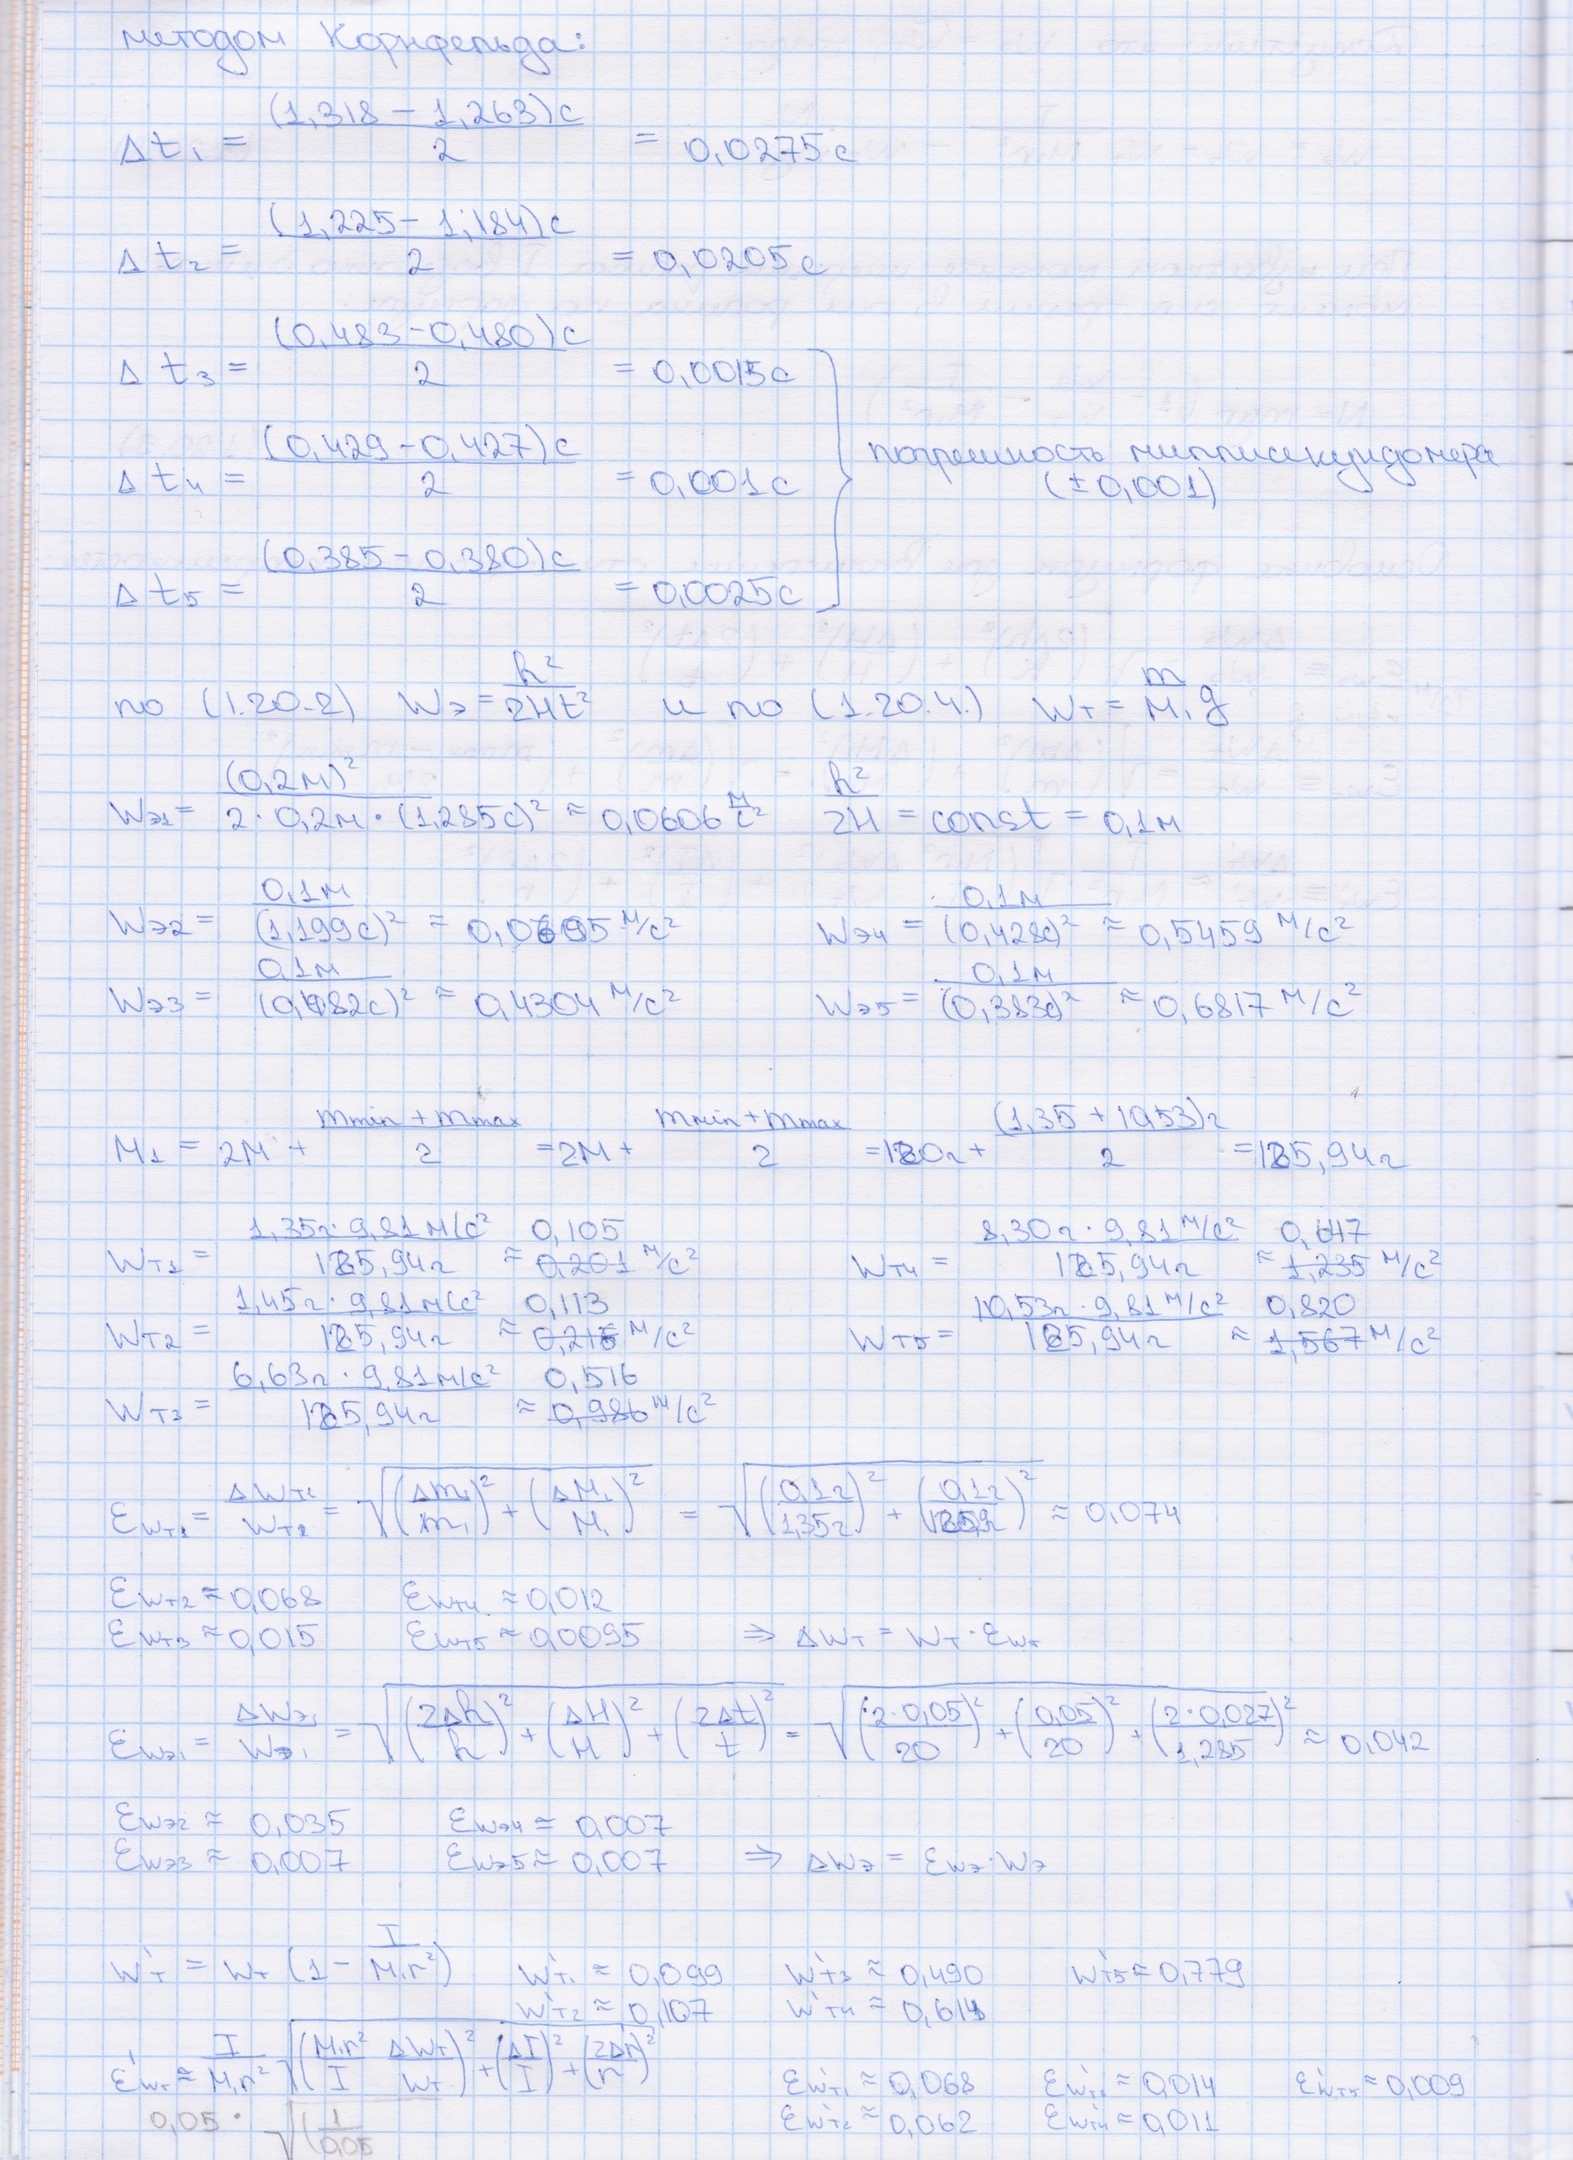 методом Корнфельда:
Δt₁ = (1,318 − 1,263)с / 2 = 0,0275с
Δt₂ = (1,225 − 1,184)с / 2 = 0,0205с
Δt₃ = (0,483 − 0,480)с / 2 = 0,0015с
Δt₄ = (0,429 − 0,427)с / 2 = 0,001с
погрешность миллисекундомера
(±0,001)
Δt₅ = (0,385 − 0,380)с / 2 = 0,0025с
по (1.20.2) Wэ = h² / 2Ht² и по (1.20.4.) Wт = m / M₁ g
Wэ1 = (0,2м)² / 2·0,2м·(1,285с)² ≈ 0,0606 м/с² h² / 2H = const = 0,1м
Wэ2 = 0,1м / (1,199с)² ≈ 0,0695 м/с² Wэ4 = 0,1м / (0,428с)² ≈ 0,5459 м/с²
Wэ3 = 0,1м / (0,482с)² ≈ 0,4304 м/с² Wэ5 = 0,1м / (0,383с)² ≈ 0,6817 м/с²
M₁ = 2M + mmin + mmax / 2 = 2M + mmin + mmax / 2 = 120г + (1,35 + 10,53)г / 2 = 125,94г
Wт1 = 1,35г·9,81м/с² / 125,94г ≈ 0,105 0,201 м/с² Wт4 = 8,30г·9,81м/с² / 125,94г ≈ 0,647 1,235 м/с²
Wт2 = 1,45г·9,81м/с² / 125,94г ≈ 0,113 0,216 м/с² Wт5 = 10,53г·9,81м/с² / 125,94г ≈ 0,820 1,567 м/с²
Wт3 = 6,63г·9,81м/с² / 125,94г ≈ 0,516 0,986 м/с²
εWт1 = ΔWт1 / Wт1 = √((Δm₁ / m₁)² + (ΔM₁ / M₁)²) = √((0,1г / 1,35г)² + (0,1г / 125,9г)²) ≈ 0,074
εWт2 ≈ 0,068 εWт4 ≈ 0,012
εWт3 ≈ 0,015 εWт5 ≈ 0,0095 ⇒ ΔWт = Wт·εWт
εWэ1 = ΔWэ1 / Wэ1 = √((2Δh / h)² + (ΔH / H)² + (2Δt / t)²) = √((2·0,05 / 20)² + (0,05 / 20)² + (2·0,027 / 1,285)²) ≈ 0,042
εWэ2 ≈ 0,035 εWэ4 ≈ 0,007
εWэ3 ≈ 0,007 εWэ5 ≈ 0,007 ⇒ ΔWэ = εWэ·Wэ
W'т = Wт (1 − I / M₁r²) W'т1 ≈ 0,099 W'т3 ≈ 0,490 W'т5 ≈ 0,779
W'т2 ≈ 0,107 W'т4 ≈ 0,614
ε'Wт ≈ I / M₁r² √((M₁r² / I ΔWт / Wт)² + (ΔI / I)² + (2Δr / r)²)
εW'т1 ≈ 0,068 εW'т3 ≈ 0,014 εW'т5 ≈ 0,009
εW'т2 ≈ 0,062 εW'т4 ≈ 0,011
0,05 · √(1 / 0,05